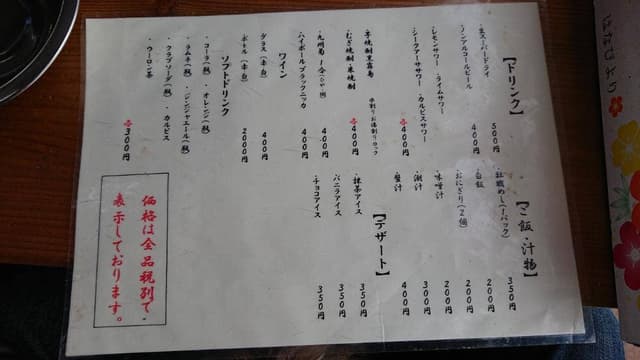 【ドリンク】
・生スーパードライ 500円
・ノンアルコールビール 400円
・レモンサワー・ライムサワー
・シークァーサーサワー・カルピスサワー
各400円
・芋焼酎黒霧島
・むぎ焼酎・米焼酎
水割り・お湯割り・ロック
各400円
・ハイボールブラックニッカ 400円
ワイン
グラス(赤・白) 400円
ボトル(赤・白) 2000円
ソフトドリンク
・コーラ(瓶)
・オレンジ(瓶)
・ラムネ(瓶)
・ジンジャエール(瓶)
・クラブソーダ(瓶)
・カルピス
・ウーロン茶
各300円
【ご飯・汁物】
350円
・白飯 200円
・おにぎり(2個) 200円
・味噌汁 200円
・潮汁 300円
・蟹汁 400円
【デザート】
・抹茶アイス 350円
・バニラアイス 350円
・チョコアイス 350円
価格は全品税別で、
表示しております。